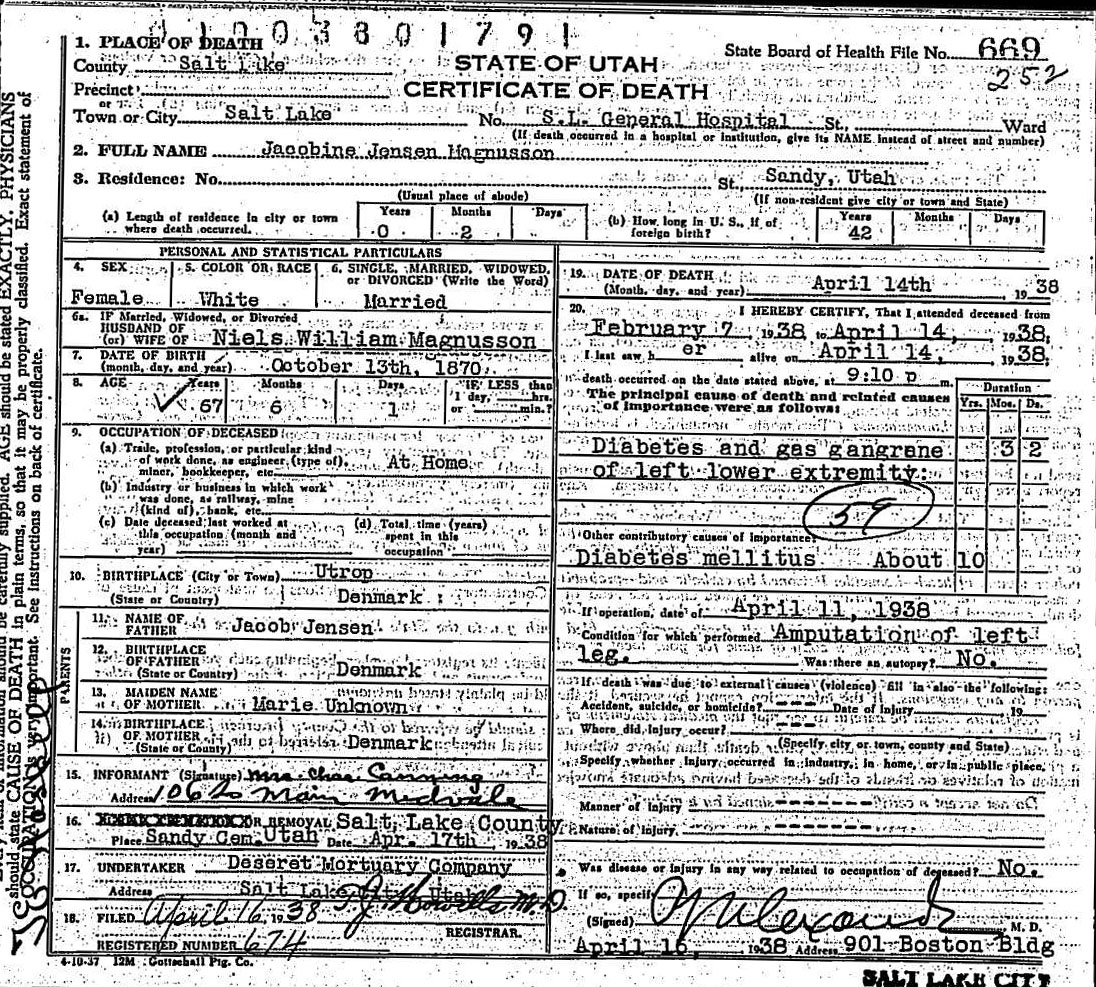 1003801791
1. PLACE OF DEATH
County Salt Lake
State Board of Health File No. 669
252
STATE OF UTAH
CERTIFICATE OF DEATH
Precinct
or
Town or City Salt Lake No. S.L. General Hospital St., Ward
(If death occurred in a hospital or institution, give its NAME instead of street and number)
2. FULL NAME Jacobine Jensen Magnusson
3. Residence: No. St. Sandy, Utah
(Usual place of abode) (If non-resident give city or town and State)
(a) Length of residence in city or town where death occurred. Years 0 Months 2 Days
(b) How long in U. S., if of foreign birth? Years 42 Months Days
PERSONAL AND STATISTICAL PARTICULARS
4. SEX Female
5. COLOR OR RACE White
6. SINGLE, MARRIED, WIDOWED, or DIVORCED (Write the Word) Married
6a. If Married, Widowed, or Divorced
HUSBAND OF
(or) WIFE OF Niels William Magnusson
7. DATE OF BIRTH
(month, day, and year) October 13th, 1870.
8. AGE Years 67 Months 6 Days 1 IF LESS than 1 day, hrs. or min.?
9. OCCUPATION OF DECEASED
(a) Trade, profession, or particular kind of work done, as engineer (type of), miner, bookkeeper, etc. At Home
(b) Industry or business in which work was done, as railway, mine (kind of), bank, etc.
(c) Date deceased last worked at this occupation (month and year)
(d) Total time (years) spent in this occupation
10. BIRTHPLACE (City or Town) Utrop
(State or Country) Denmark
PARENTS
11. NAME OF FATHER Jacob Jensen
12. BIRTHPLACE OF FATHER
(State or Country) Denmark
13. MAIDEN NAME OF MOTHER Marie Unknown
14. BIRTHPLACE OF MOTHER
(State or Country) Denmark
15. INFORMANT (Signature) Mrs Chas Canning
Address 106 So Main Midvale
16. OR REMOVAL Salt Lake County
Place Sandy Cem. Utah Date Apr. 17th 1938
17. UNDERTAKER Deseret Mortuary Company
Address Salt Lake City Utah
18. FILED April 16, 1938 M.D.
REGISTRAR.
REGISTERED NUMBER 674
4-10-37 12M Gottschall Ptg. Co.
19. DATE OF DEATH
(Month, day, and year) April 14th 1938
20. I HEREBY CERTIFY, That I attended deceased from
February 7, 1938, to April 14, 1938,
I last saw her alive on April 14, 1938,
death occurred on the date stated above, at 9:10 p m.
The principal cause of death and related causes of importance were as follows:
Duration
Yrs. Mos. Ds.
Diabetes and gas gangrene 3 2
of left lower extremity.
59
Other contributory causes of importance:
Diabetes mellitus About 10
If operation, date of April 11, 1938
Condition for which performed Amputation of left
leg. Was there an autopsy? No.
If death was due to external causes (violence) fill in also the following:
Accident, suicide, or homicide? --- Date of Injury 19
Where did injury occur? ---
(Specify city or town, county and State)
Specify whether injury occurred in industry, in home, or in public place.
Manner of injury
Nature of injury
Was disease or injury in any way related to occupation of deceased? No.
If so, specify
(Signed) M. D.
April 16, 1938 Address 901 Boston Bldg
SALT LAKE CITY
AGE should be stated EXACTLY. PHYSICIANS
should state CAUSE OF DEATH in plain terms, so that it may be properly classified. Exact statement of
OCCUPATION is very important. See instructions on back of certificate.